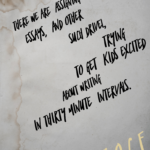 THERE WE ARE ASSIGNING
ESSAYS, AND OTHER
SUCH DRIVEL,
TRYING
TO GET KIDS EXCITED
ABOUT WRITING
IN THIRTY MINUTE INTERVALS.